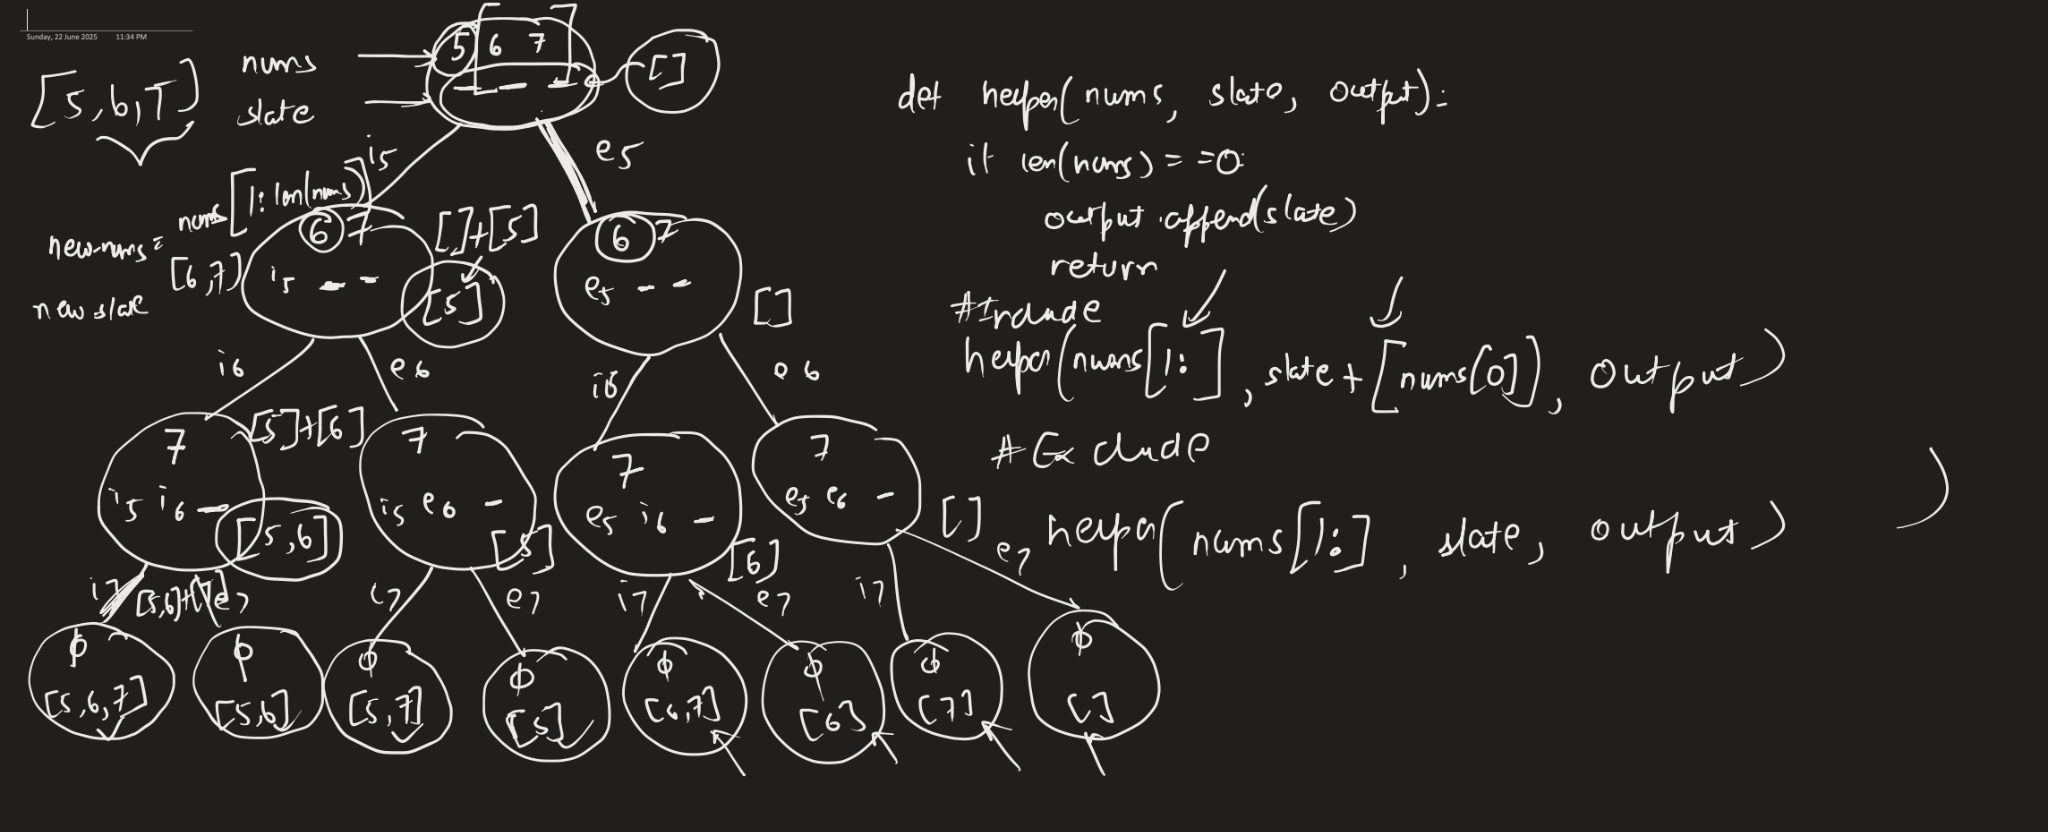 Sunday, 22 June 2025 11:34 PM
[5,6,7]
nums
slate
5 [6 7]
_ _ _
[]
i5
e5
new-nums = nums[1:len(nums)]
[6,7]
new slate
6 7
i5 _ _
[]+[5]
[5]
6 7
e5 _ _
[]
i6
e6
i6
e6
7
i5 i6 _
[5]+[6]
[5,6]
7
i5 e6 _
[5]
7
e5 i6 _
[6]
7
e5 e6 _
[]
i7
[5,6]+[7]
e7
i7
e7
i7
e7
i7
e7
ϕ
[5,6,7]
ϕ
[5,6]
ϕ
[5,7]
ϕ
[5]
ϕ
[6,7]
ϕ
[6]
ϕ
[7]
ϕ
[]
def helper(nums, slate, output):
if len(nums) == 0:
output.append(slate)
return
#Include
helper(nums[1:], slate + [nums[0]], output)
# Exclude
helper(nums[1:], slate, output)
)